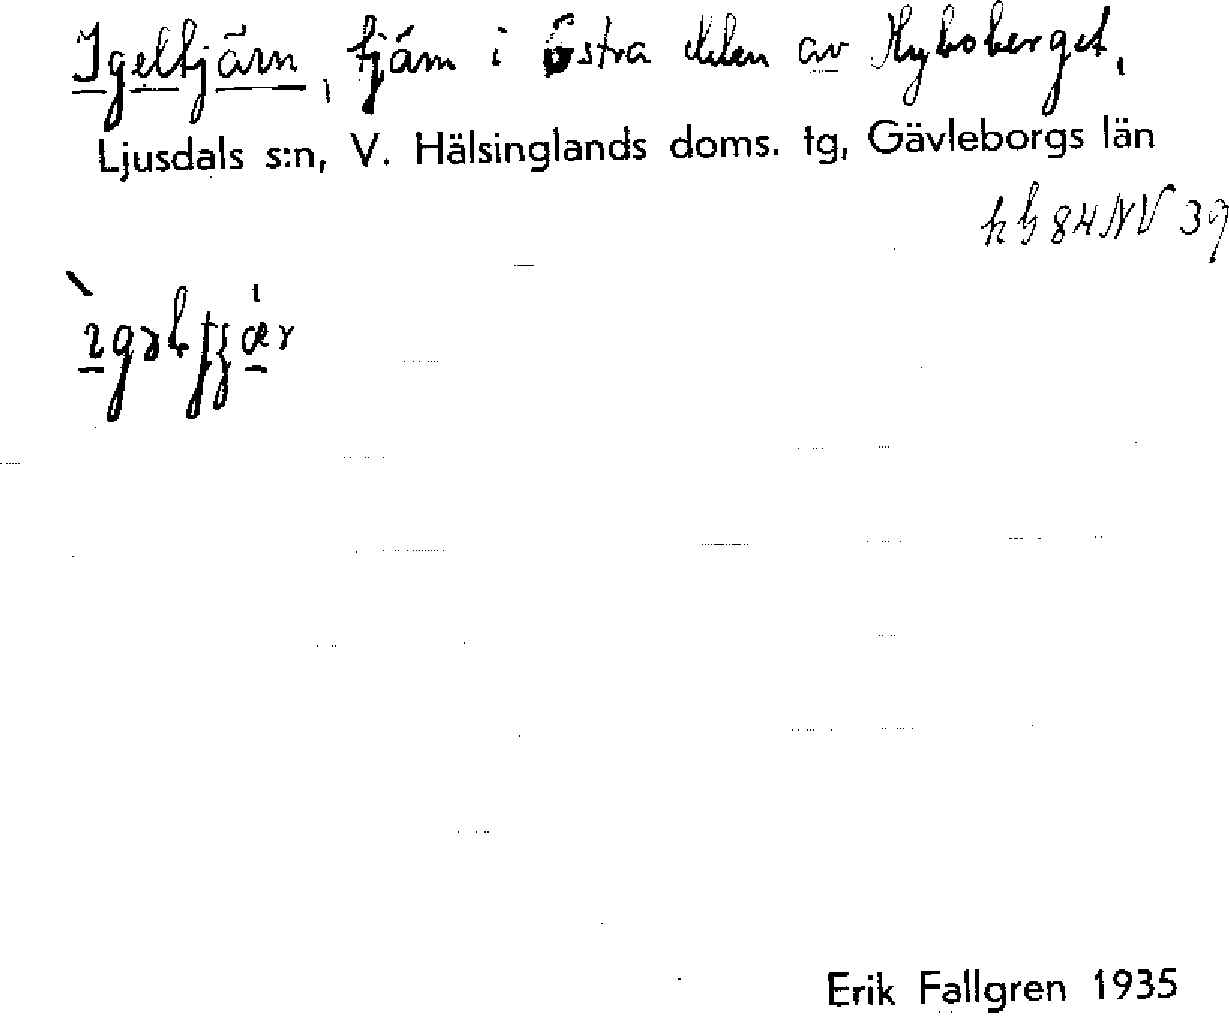 Igeltjärn, tjärn i östra delen av Hyboberget,
Ljusdals s:n, V. Hälsinglands doms. tg, Gävleborgs län
84 NV 39
Erik Fallgren 1935